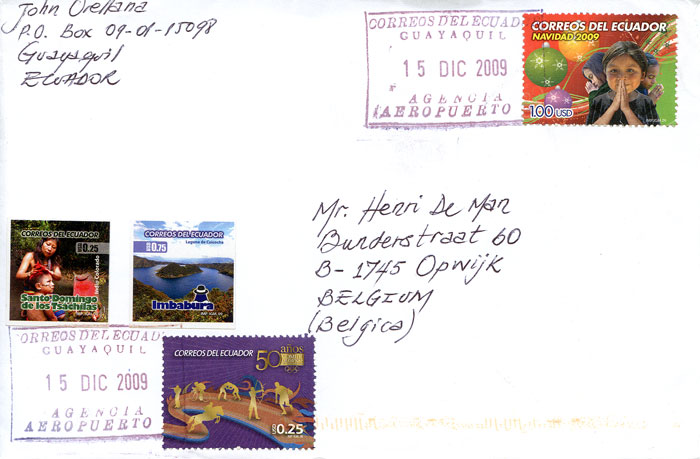 John Orellana
P.O. Box 09-01-15098
Guayaquil
ECUADOR
CORREOS DEL ECUAD
GUAYAQUIL
15 DIC 2009
AGENCIA
AEROPUERTO
CORREOS DEL ECUADOR
NAVIDAD 2009
1.00 USD
Mr. Henri De Man
Bunderstraat 60
B-1745 Opwijk
BELGIUM
(Belgica)
CORREOS DEL ECUADOR
USD 0.25
Santo Domingo
de los Tsáchilas
CORREOS DEL ECUADOR
Laguna de Cuicocha
USD 0.75
Imbabura
ORREOS DEL ECUAD
GUAYAQUIL
15 DIC 2009
AGENCIA
AEROPUERTO
CORREOS DEL ECUADOR
50 años
USD 0.25